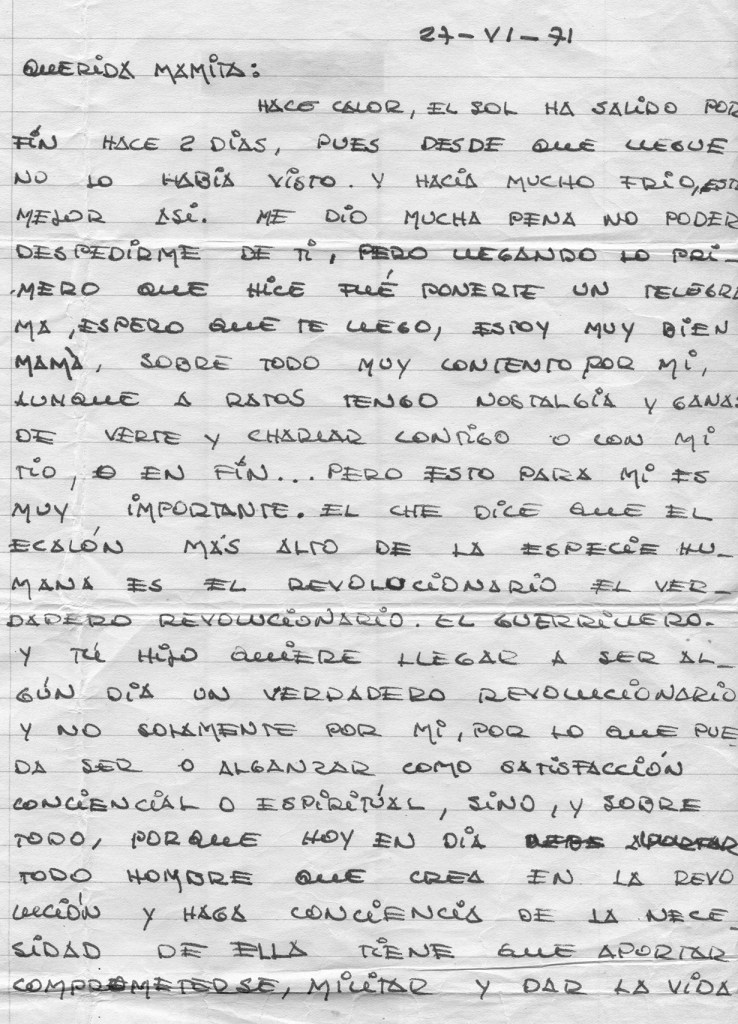 27-VI-71
QUERIDA MAMITA:
HACE CALOR, EL SOL HA SALIDO POR
FÍN HACE 2 DIAS, PUES DESDE QUE LLEGUE
NO LO HABIA VISTO. Y HACIA MUCHO FRIO, ESTA
MEJOR ASI. ME DIO MUCHA PENA NO PODER
DESPEDIRME DE TI, PERO LLEGANDO LO PRI-
MERO QUE HICE FUÉ PONERTE UN TELEGRA
MA, ESPERO QUE TE LLEGO, ESTOY MUY BIEN
MAMÁ, SOBRE TODO MUY CONTENTO POR MI,
AUNQUE A RATOS TENGO NOSTALGIA Y GANAS
DE VERTE Y CHARLAR CONTIGO O CON MI
TIO, O EN FÍN... PERO ESTO PARA MI ES
MUY IMPORTANTE. EL CHE DICE QUE EL
ECALÓN MÁS ALTO DE LA ESPECIE HU-
MANA ES EL REVOLUCIONARIO EL VER-
DADERO REVOLUCIONARIO. EL GUERRILLERO.
Y TÚ HIJO QUIERE LLEGAR A SER AL-
GÚN DIA UN VERDADERO REVOLUCIONARIO
Y NO SOLAMENTE POR MI, POR LO QUE PUE
DA SER O ALGANZAR COMO SATISFACCIÓN
CONCIENCIAL O ESPIRITÚAL, SINO, Y SOBRE
TODO, PORQUE HOY EN DIA DEBE APORTAR
TODO HOMBRE QUE CREA EN LA REVO
LUCIÓN Y HAGA CONCIENCIA DE LA NECE-
SIDAD DE ELLA TIENE QUE APORTAR
COMPROMETERSE, MILITAR Y DAR LA VIDA